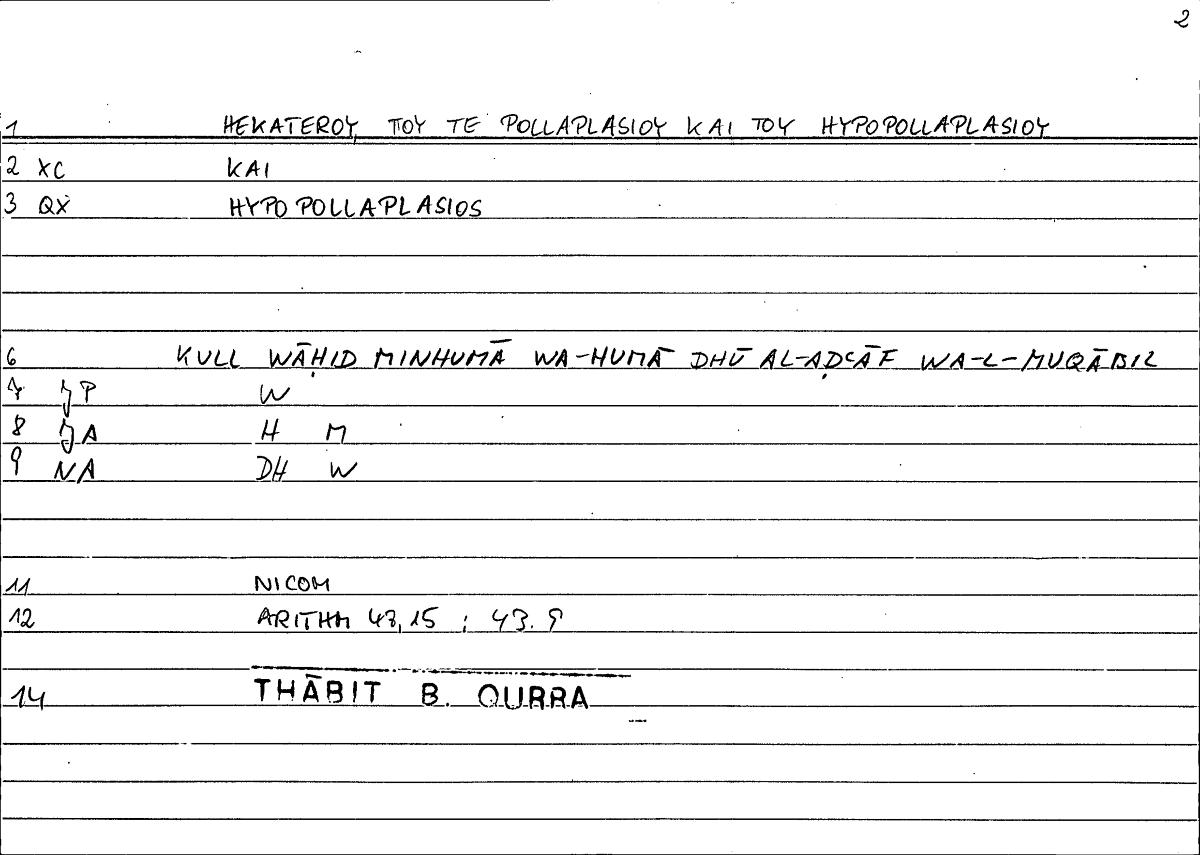 2
1 HEKATEROY TOY TE POLLAPLASIOY KAI TOY HYPOPOLLAPLASIOY
2 XC KAI
3 QX HYPOPOLLAPLASIOS
6 KULL WĀḤID MINHUMĀ WA-HUMĀ DHŪ AL-AḌCĀF WA-L-MUQĀBIL
7 P W
8 A H M
9 NA DH W
11 NICOM
12 ARITHM 43,15 ; 43.9
14 THĀBIT B. QURRA